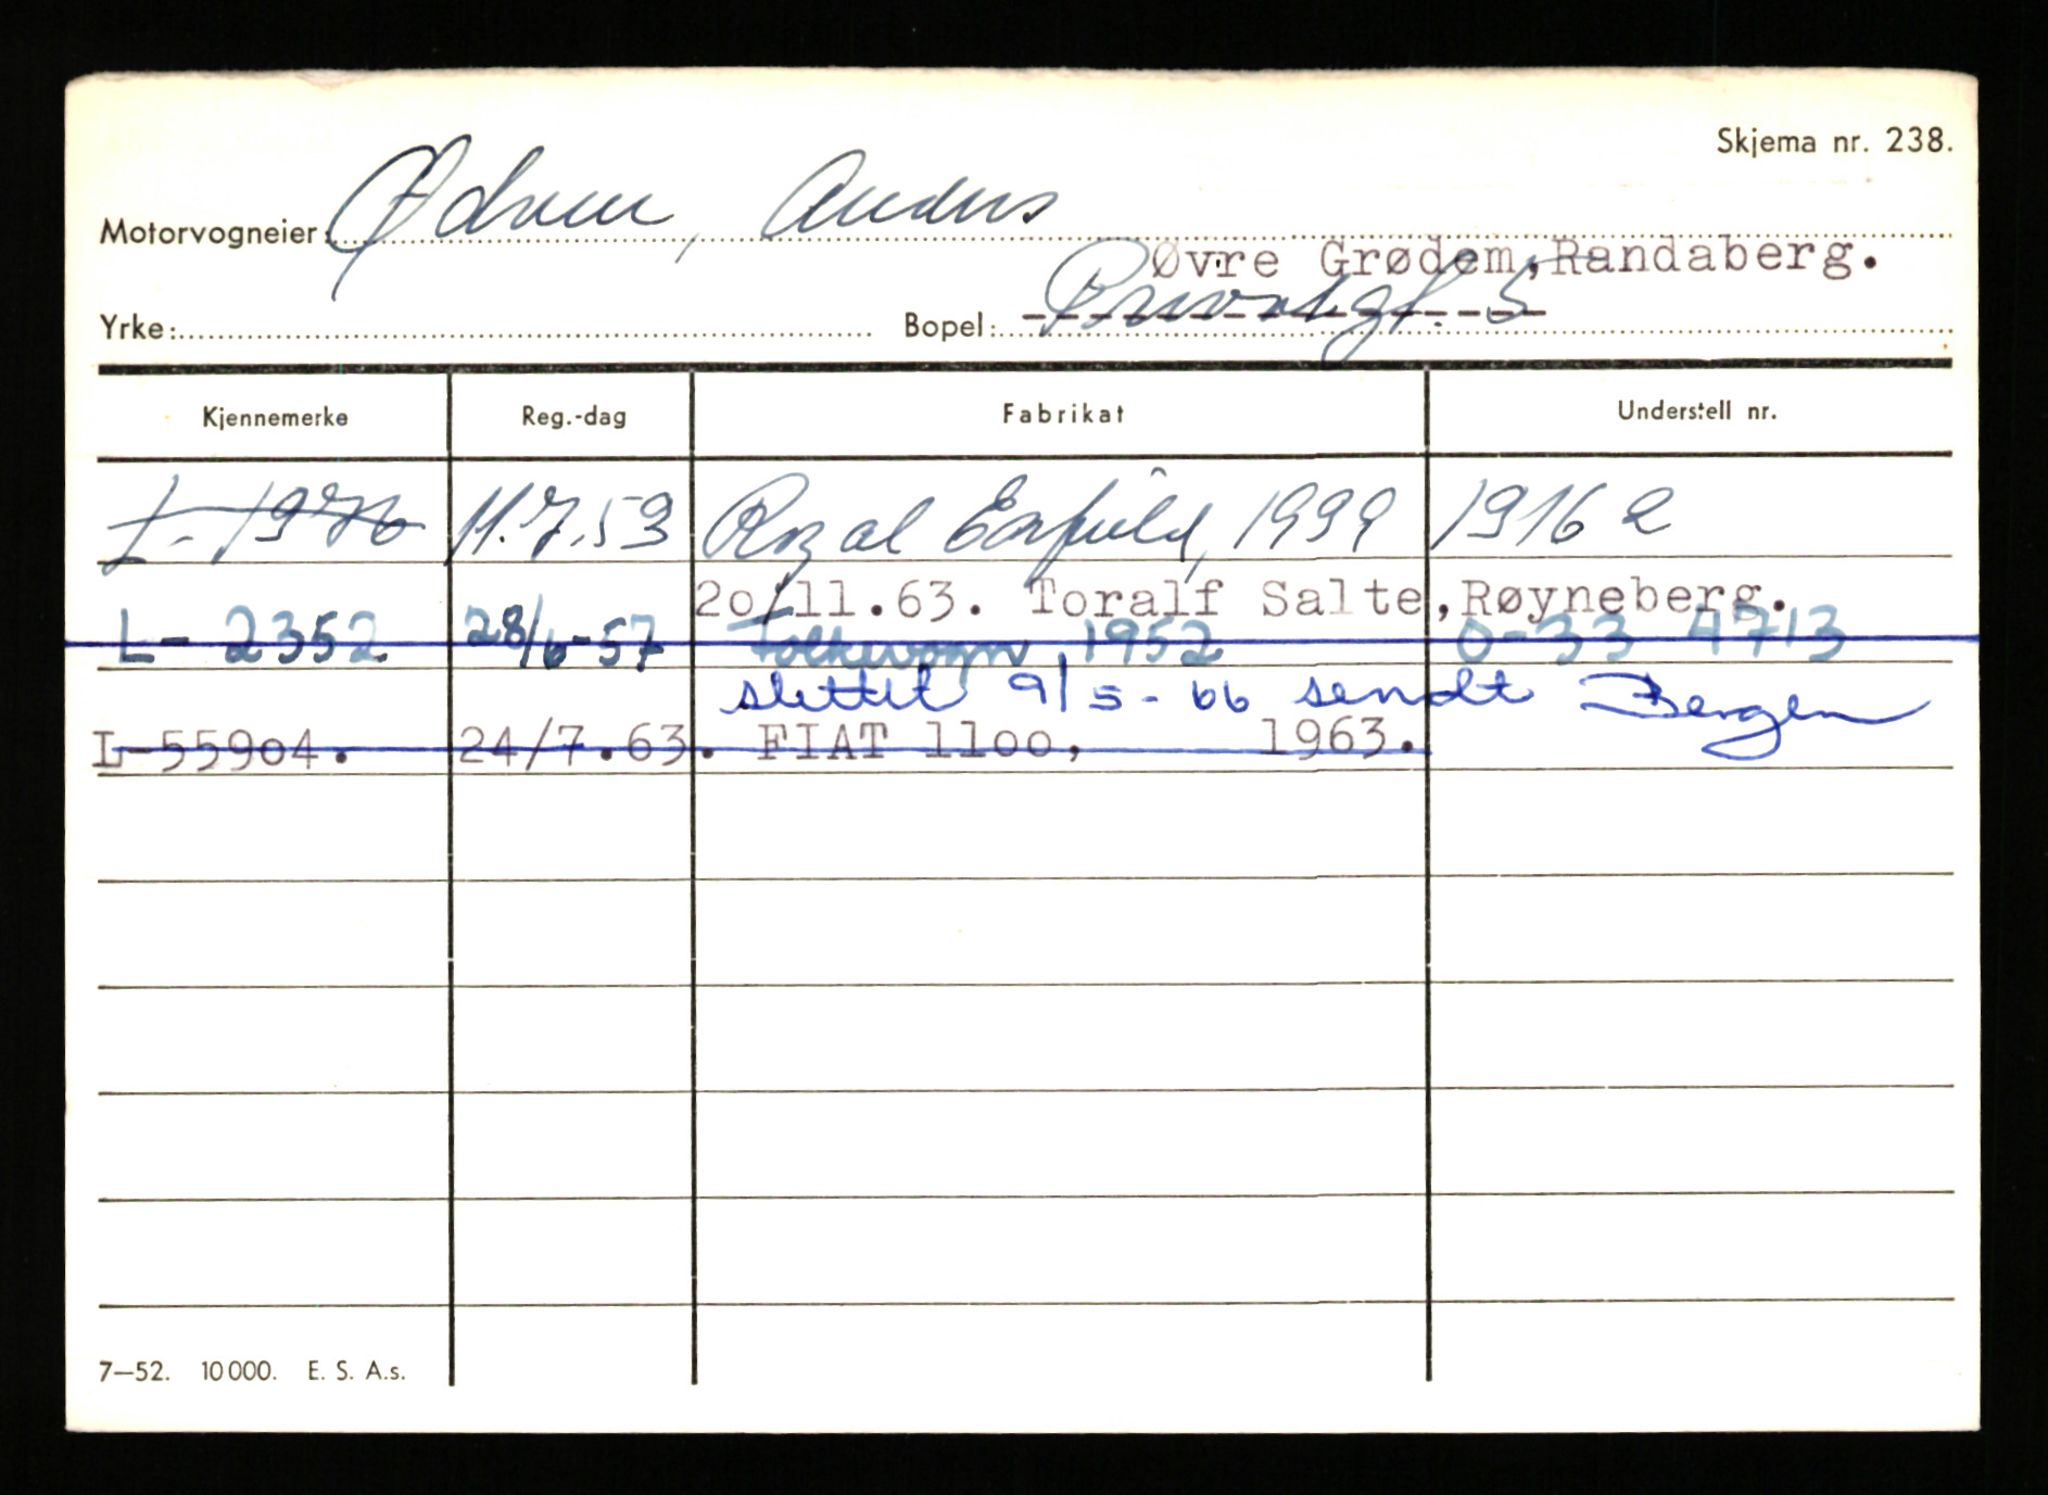 Skjema nr. 238.
Motorvogneier: Ødven, Anders
Øvre Grødem, Randaberg.
Yrke: Bopel:
Kjennemerke Reg.-dag Fabrikat Understell nr.
L-1976 11.7.53 Royal Enfield, 1949 19162
20/11.63. Toralf Salte, Røyneberg.
L-2352 28/6-57 Folkevogn 1952 0-33 4713
slettet 9/5-66 sendt Bergen
L-55904. 24/7.63. FIAT 1100, 1963.
7-52. 10 000. E. S. A.s.